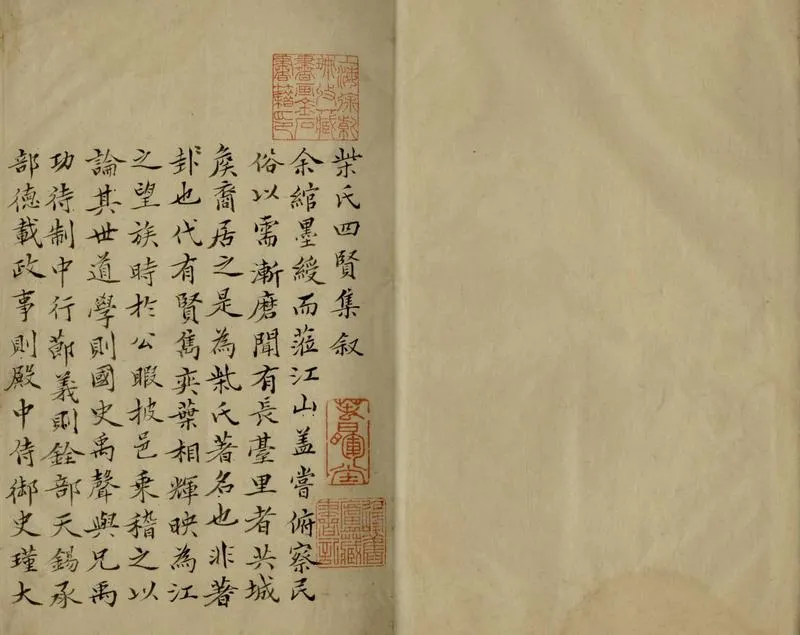 柴氏四賢集叙
余綰墨綬而蒞江山盖嘗俯察民
俗以需漸磨聞有長臺里者共城
矦裔居之是為柴氏著名也非著
卦也代有賢雋奕葉相輝映為江
之望族時於公暇披邑乗稽之以
論其世道學則國史禹聲與兄禹
功待制中行節義則銓部天錫承
部德載政事則殿中侍御史瑾大